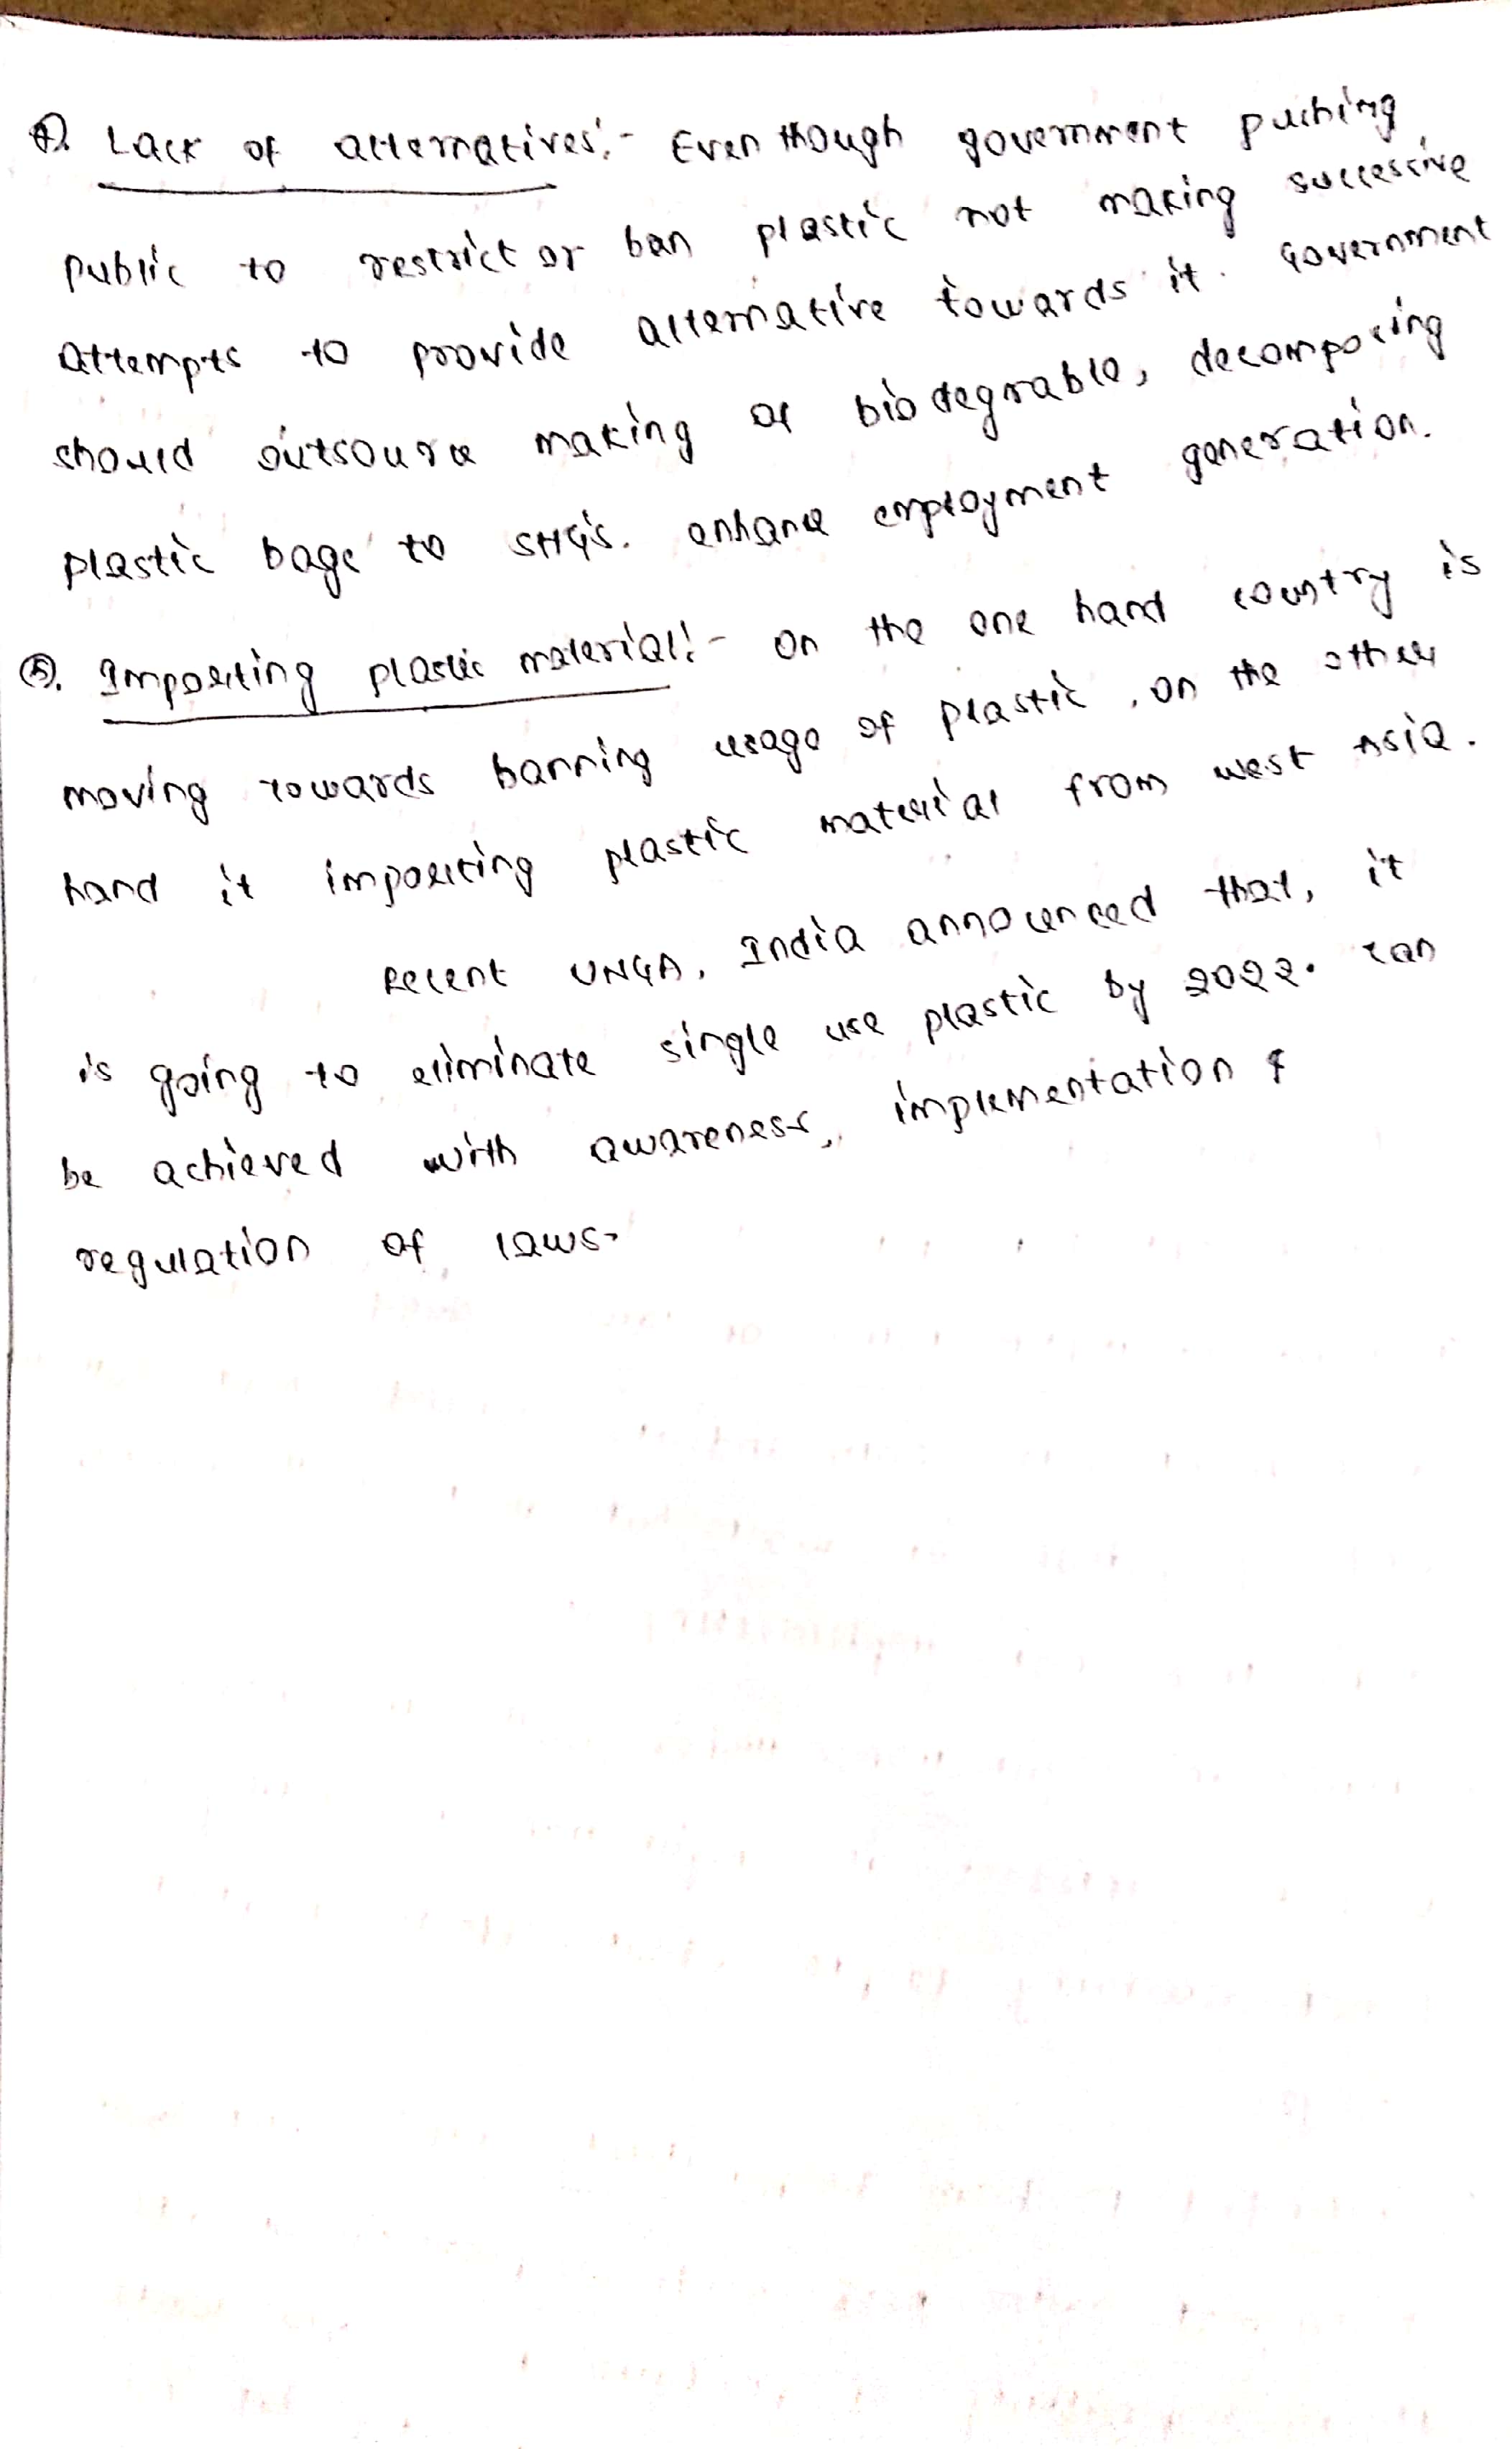 ④. Lack of alternatives:- Even though government pushing
public to restrict or ban plastic not making successive
attempts to provide alternative towards it. Government
should outsource making of biodegrable, decomposing
plastic bags to SHG's. enhance employment generation.
⑤. Importing plastic material:- On the one hand country is
moving towards banning usage of plastic, on the other
hand it importing plastic material from west Asia.
Recent UNGA, India announced that, it
is going to eliminate single use plastic by 2022. can
be achieved with awareness, implementation &
regulation of laws.